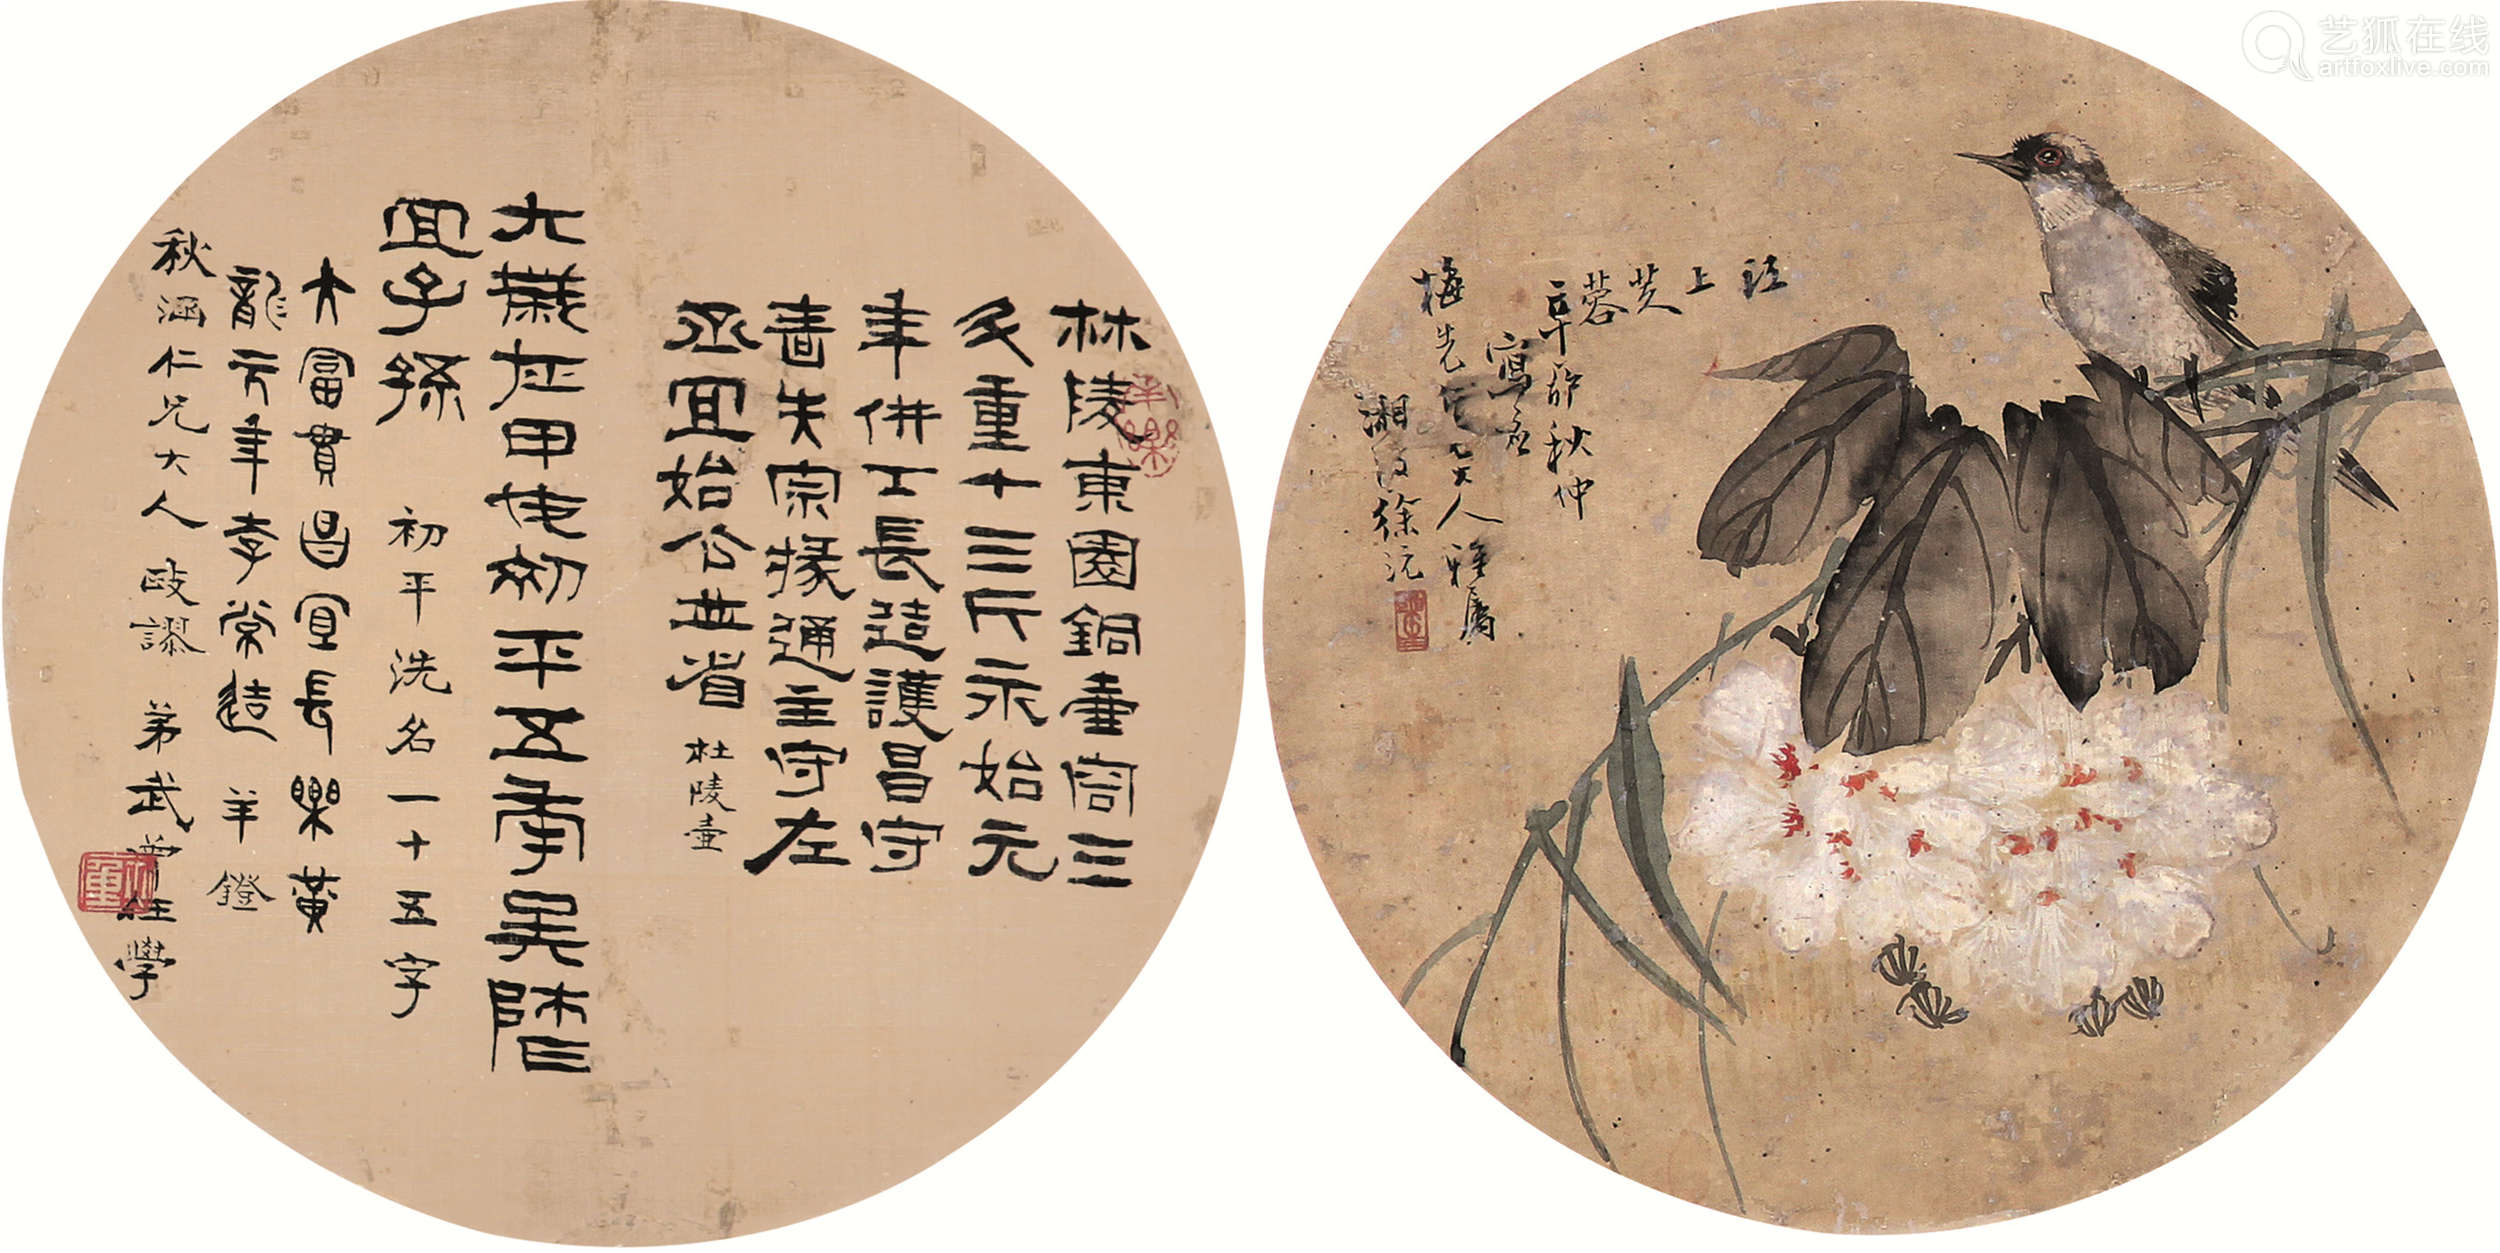 杜陵東園銅壺容三
斗重十三斤永始元
年供工長造護昌守
嗇夫宗掾通主守左
丞宜始令並省 杜陵壺
大歲在甲戌初平五年吳師
宜子孫 初平洗名一十五字
大富貴昌宜長樂黃
龍元年李常造 羊鐙
秋涵仁兄大人 政謬 弟武曾任學
江上芙蓉
辛酉秋仲
寫應
梅先仁兄大人雅屬
湘波徐沅
艺狐在线
artfoxlive.com